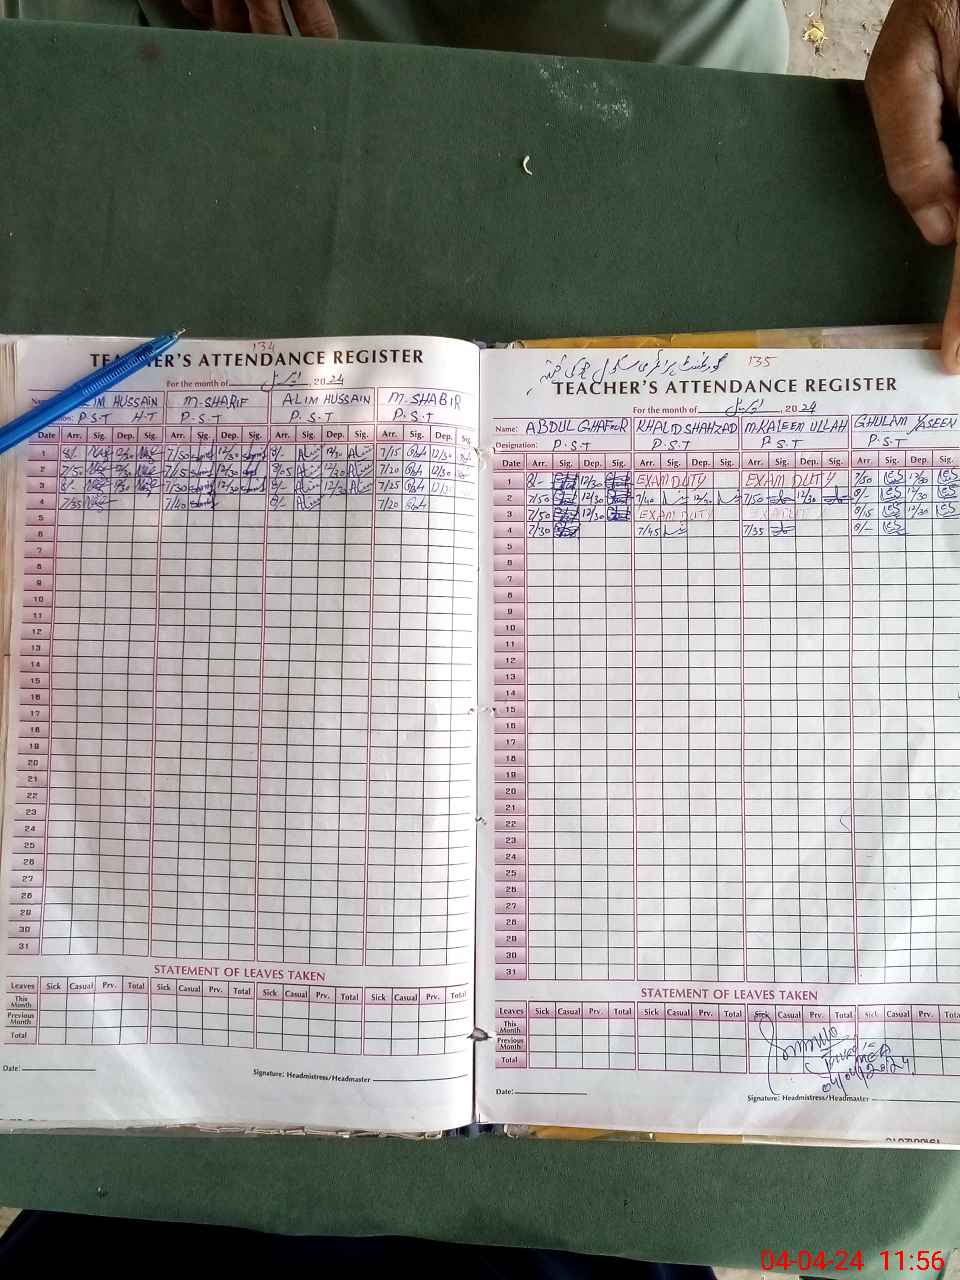 134
TEACHER'S ATTENDANCE REGISTER
For the month of اپریل, 2024
HUSSAIN M-SHARIF ALIM HUSSAIN M.SHABIR
P.S.T H.T P.S.T P.S.T P.S.T
Date Arr. Sig. Dep. Sig. Arr. Sig. Dep. Sig. Arr. Sig. Dep. Sig. Arr. Sig. Dep. Sig.
1 8/- 12/30 7/50 12/30 8/- 12/30 7/15 12/30
2 7/50 12/30 7/35 12/30 8/05 12/30 7/20 12/30
3 8/- 12/30 7/30 12/30 8/- 12/30 7/25
4 7/35 7/40 8/- 7/20
5
6
7
8
9
10
11
12
13
14
15
16
17
18
19
20
21
22
23
24
25
26
27
28
29
30
31
STATEMENT OF LEAVES TAKEN
Leaves Sick Casual Prv. Total Sick Casual Prv. Total Sick Casual Prv. Total Sick Casual Prv. Total
This Month
Previous Month
Total
Date:
Signature: Headmistress/Headmaster
135
TEACHER'S ATTENDANCE REGISTER
For the month of اپریل, 2024
Name: ABDUL GHAFOOR KHALID SHAHZAD M.KALEEM ULLAH GHULAM YASEEN
Designation: P.S.T P.S.T P.S.T P.S.T
Date Arr. Sig. Dep. Sig. Arr. Sig. Dep. Sig. Arr. Sig. Dep. Sig. Arr. Sig. Dep. Sig.
1 8/- 12/30 EXAM DUTY EXAM DUTY 7/50 12/30
2 7/50 12/30 7/40 12/30 7/50 12/30 8/- 12/30
3 7/50 12/30 EXAM DUTY 8/15 12/30
4 7/30 7/45 7/35 8/-
5
6
7
8
9
10
11
12
13
14
15
16
17
18
19
20
21
22
23
24
25
26
27
28
29
30
31
STATEMENT OF LEAVES TAKEN
Leaves Sick Casual Prv. Total Sick Casual Prv. Total Sick Casual Prv. Total Sick Casual Prv.
This Month
Previous Month
Total
MEA
04/04/2024
Date:
Signature: Headmistress/Headmaster
04-04-24 11:56